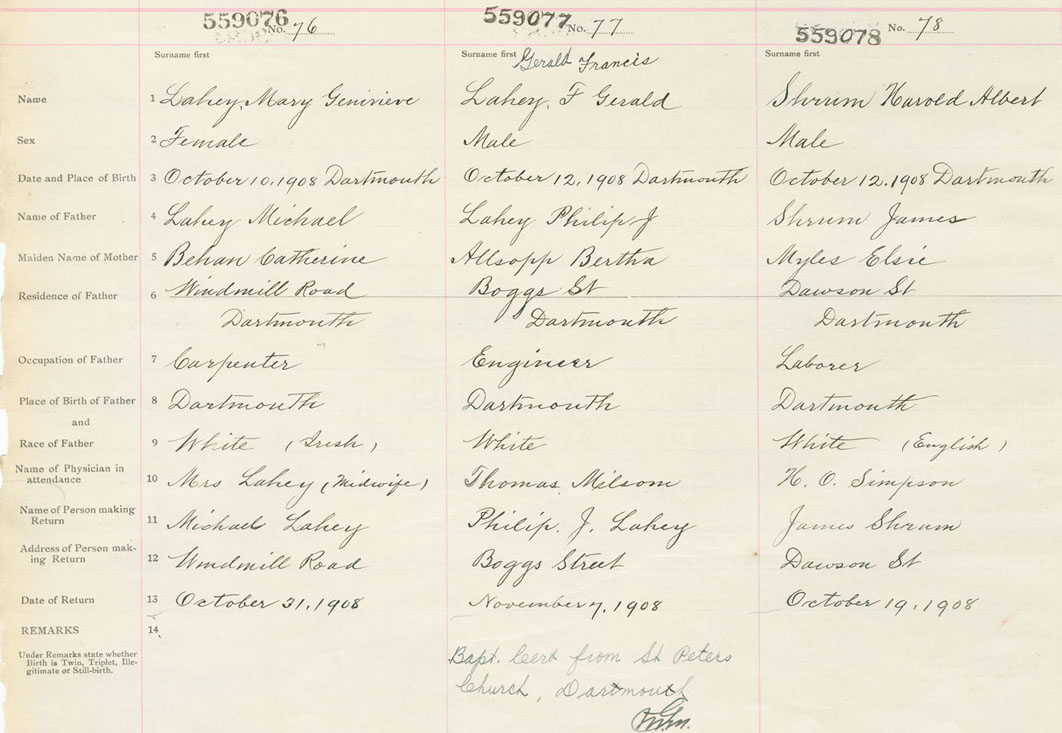 559076 No. 76
559077 No. 77
559078 No. 78
Surname first
Surname first Gerald Francis
Surname first
Name 1 Lahey, Mary Genivieve Lahey, F Gerald Shrum Harold Albert
Sex 2 Female Male Male
Date and Place of Birth 3 October 10, 1908 Dartmouth October 12, 1908 Dartmouth October 12, 1908 Dartmouth
Name of Father 4 Lahey Michael Lahey Philip J Shrum James
Maiden Name of Mother 5 Behan Catherine Allsopp Bertha Myles Elsie
Residence of Father 6 Windmill Road Boggs St Dawson St
Dartmouth Dartmouth Dartmouth
Occupation of Father 7 Carpenter Engineer Laborer
Place of Birth of Father 8 Dartmouth Dartmouth Dartmouth
and
Race of Father 9 White (Irish) White White (English)
Name of Physician in
attendance 10 Mrs Lahey (Midwife) Thomas Milsom H. O. Simpson
Name of Person making
Return 11 Michael Lahey Philip. J. Lahey James Shrum
Address of Person mak-
ing Return 12 Windmill Road Boggs Street Dawson St
Date of Return 13 October 31, 1908 November 7, 1908 October 19, 1908
REMARKS 14
Under Remarks state whether
Birth is Twin, Triplet, Ille-
gitimate or Still-birth.
Bapt. Cert from St Peters
Church, Dartmouth